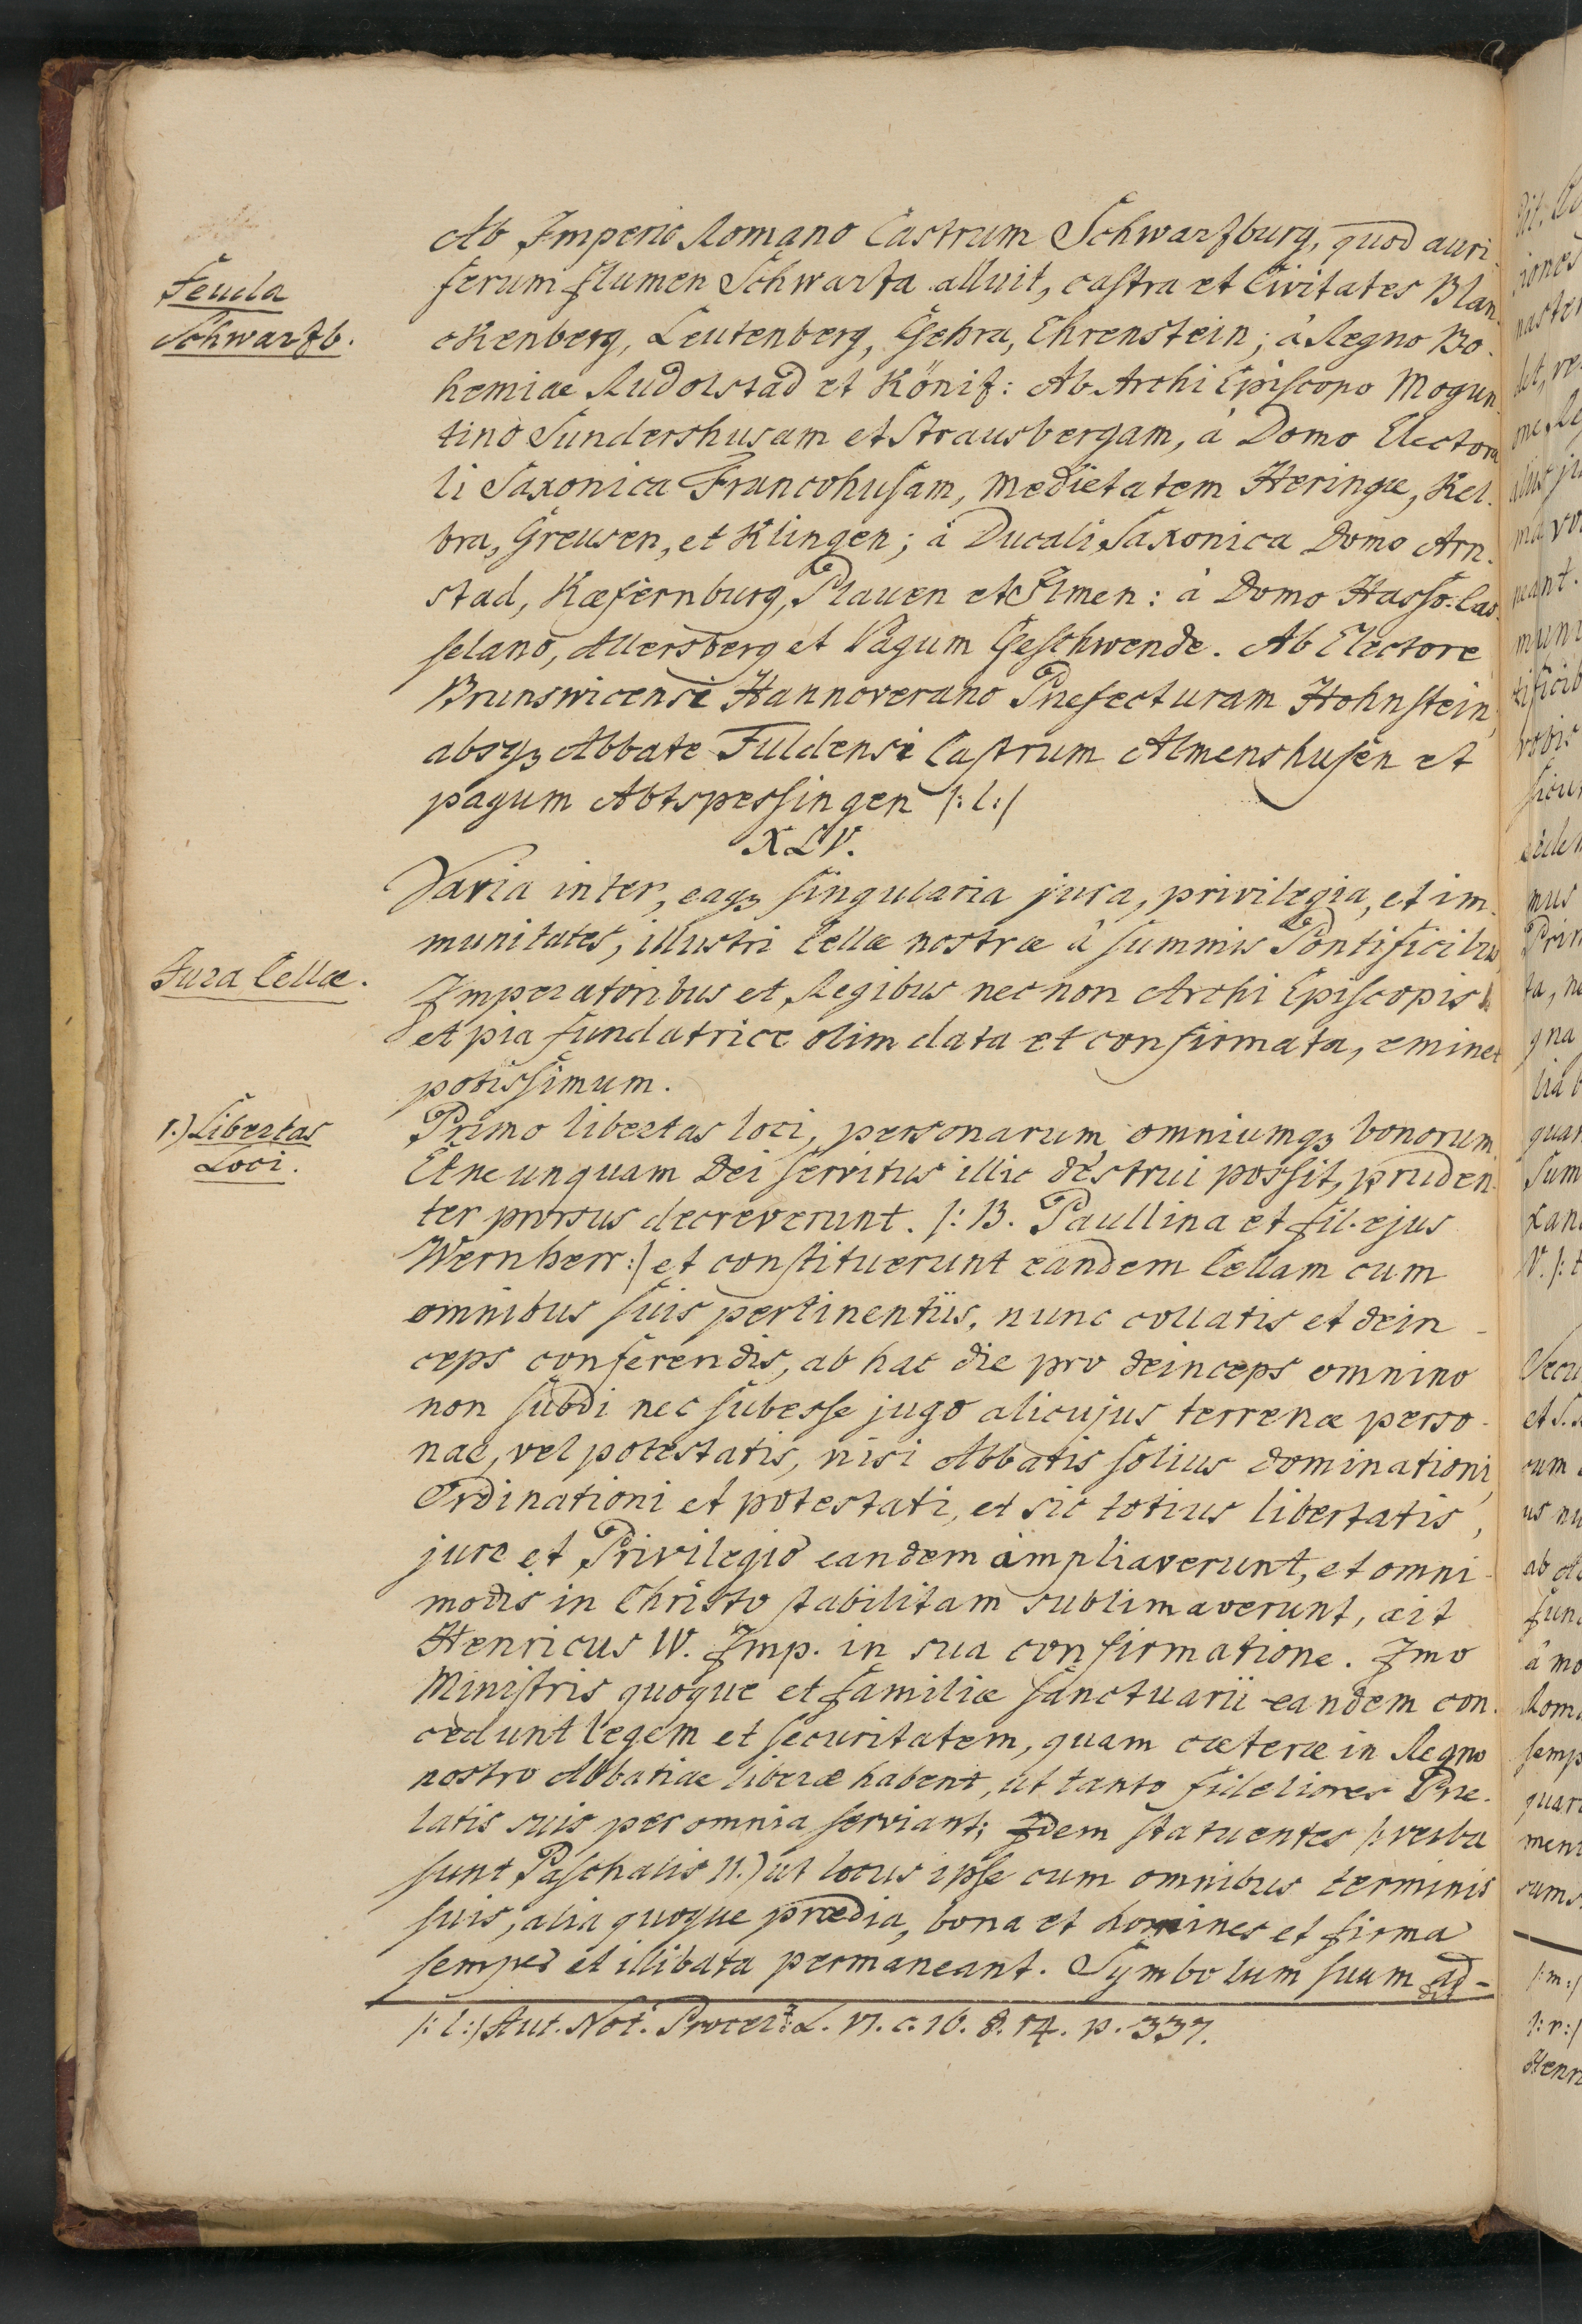 Ab Imperio Romano Castrum Schwarzburg, quod auri-
Feuda
Schwarzb.
ferum flumen Schwarza alluit, castra et Civitates Blan-
ckenberg, Leutenberg, Gehra, Ehrenstein; à Regno Bo-
hemiae Rudolstad et Köniz: Ab Archi Episcopo Mogun-
tino Sundershusam et Strausbergam, à Domo Electora
li Saxonica Francohusam, medietatem Heringæ, Kel-
bra, Greusen, et Klingen; à Ducali Saxonica Domo Arn-
stad, Kæfernburg, Plauen et Ilmen: à Domo Hasso-Cas-
selano, Allersberg et Pagum Geschwende. Ab Electore
Brunswicensi Hannoverano Præfecturam Hohnstein,
absqȝ Abbate Fuldensi Castrum Almenshusen et
pagum Abtspessingen /:l:/
XLV.
Varia inter, eaqȝ singularia jura, privilegia, et im-
munitates, illustri Cellæ nostræ â summis Pontificibus
Jura Cellæ.
Imperatoribus et Regibus nec non Archi Episcopis
et pia fundatrice olim data et confirmata, eminet
potissimum.
1.) Libertas
Loci.
Primo libertas loci, personarum omniumqȝ bonorum,
Et ne unquam Dei servitus illic destrui possit, pruden-
ter prorsus decreverunt. /: B. Paullina et fil. ejus
Wernherr:/ et constituerunt eandem Cellam cum
omnibus suis pertinentiis, nunc collatis et dein-
ceps conferendis, ab hac die pro deinceps omnino
non subdi nec subesse jugo alicujus terrenæ perso-
nae, vel potestatis, nisi Abbatis solius dominationi,
Ordinationi et potestati, et sic totius libertatis,
jure et Privilegio eandem ampliaverunt, et omni-
modis in Christo stabilitam sublimaverunt, ait
Henricus IV. Imp. in sua confirmatione. Imo
Ministris quoque et familiæ sanctuarii eandem con-
cedunt legem et securitatem, quam cæteræ in Regno
nostro Abbatiae liberæ habent, ut tanto fideliores Præ-
latis suis per omnia serviant; Idem statuentes /: verba
sunt Paschalis II.) ut locus ipse cum omnibus terminis
suis, alia quoque prædia, bona et homines et firma
semper et illibata permaneant. Symbolum suum ad-
/:l:/ Aut. Not. Procer: L. VI. c. 16. §. 14. p. 337.